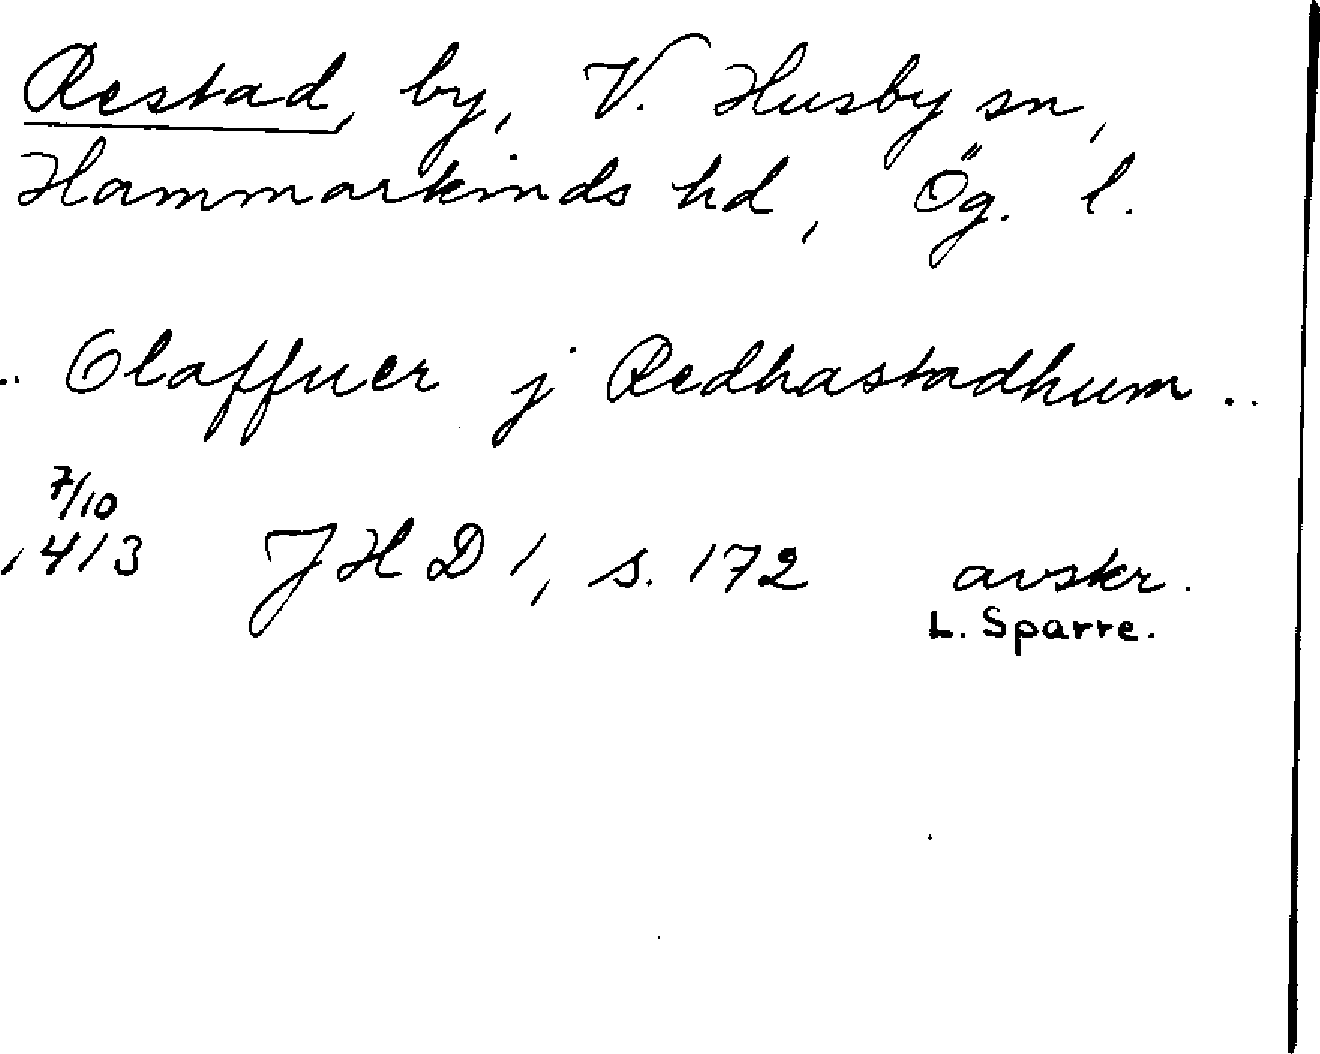 Restad, by, V. Husby sn,
Hammarkinds hd, Ög. l.
.. Olaffuer j Redhastadhum ..
7/10
1413 JHD 1, s. 172 avskr.
L. Sparre.